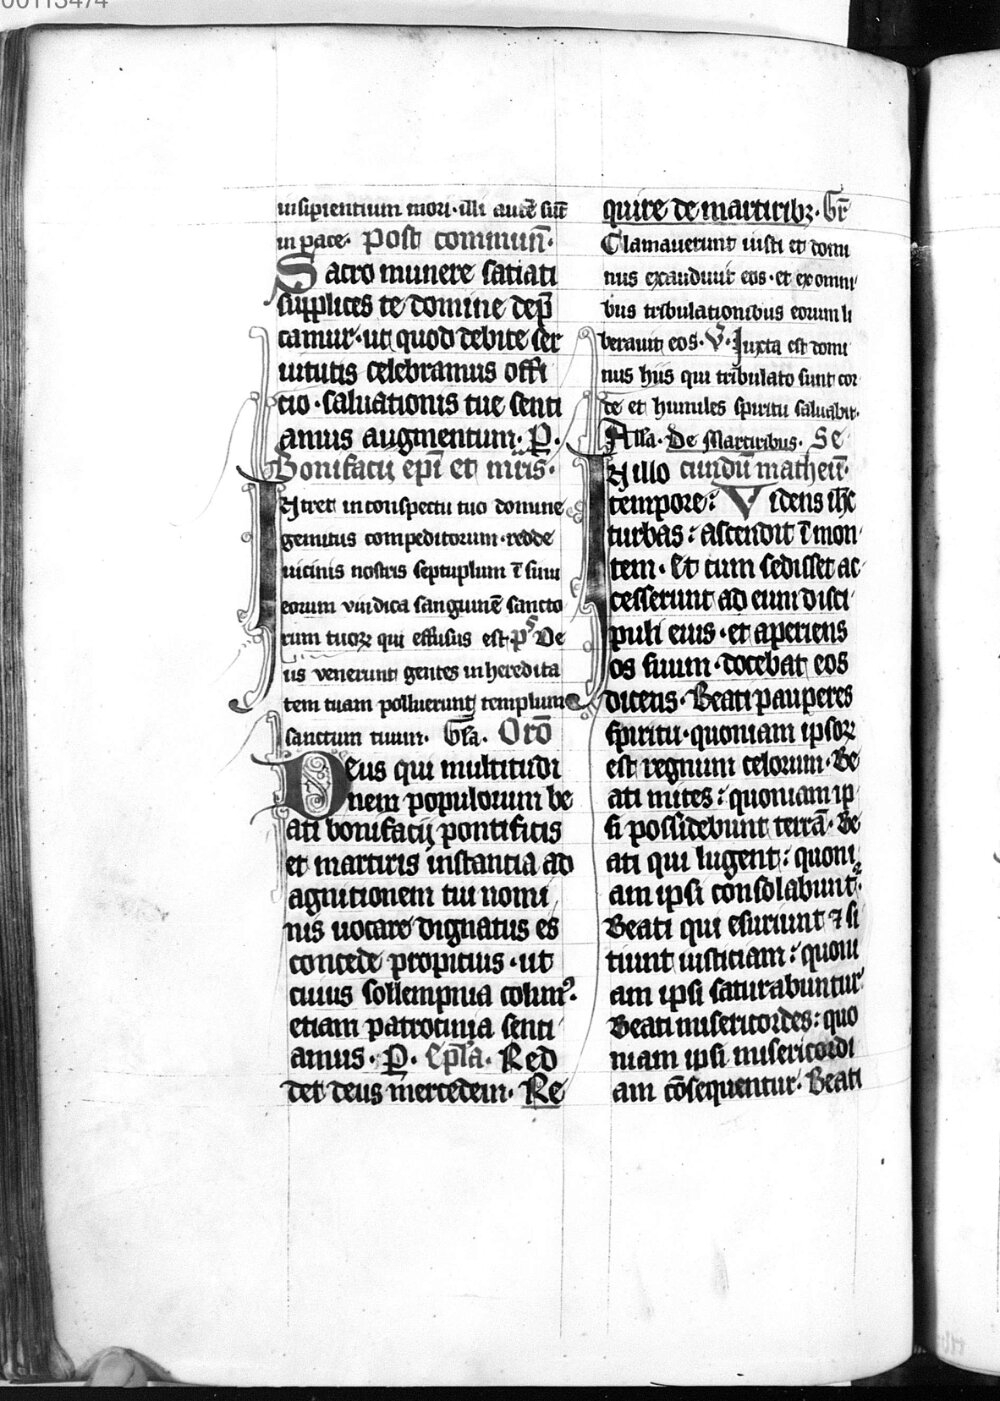 00113474
insipientium mori · illi autē sūt
in pace · Post commun̄ ·
Sacro munere satiati
supplices te domine dep̄
camur · ut quod debite ser
uitutis celebramus offi
cio · saluationis tue senti
amus augmentum · P̲ ·
Bonifacij ep̄i et m̄ris ·
Intret in conspectu tuo domine
gemitus compeditorum · redde
uicinis nostris septuplum ī sinu
eorum vindica sanguinē sancto
rum tuoꝝ qui effusus est · pˢ De
us venerunt gentes in heredita
tem tuam polluerunt templum
sanctum tuum · Gl̄a · Orō
Deus qui multitudi
nem populorum be
ati bonifacij pontificis
et martiris instantia ad
agnitionem tui nomi
nis uocare dignatus es
concede propicius · ut
cuius sollempnia colim⁹ ·
etiam patrocinia senti
amus · P̲ · Ep̄la · Red
det deus mercedem · Re
quire de martiribꝫ · Gr̄
Clamauerunt iusti et domi
nus exaudiuit eos · et ex omni
bus tribulationibus eorum li
berauit eos · V̄ · Iuxta est domi
nus hiis qui tribulato sunt cor
de et humiles spiritu saluabit ·
All̄a · De Martiribus · Se
In illo cundū matheū ·
tempore : Videns ih̄c
turbas : ascendit ī mon
tem · Et cum sedisset ac
cesserunt ad eum disci
puli eius · et aperiens
os suum · docebat eos
dicens · Beati pauperes
spiritu · quoniam ipsoꝝ
est regnum celorum · Be
ati mites : quoniam ip
si possidebunt terrā · Be
ati qui lugent : quoni
am ipsi consolabunt̄ ·
Beati qui esuriunt ⁊ si
tiunt iusticiam : quoni
am ipsi saturabuntur ·
Beati misericordes : quo
niam ipsi misericordi
am cōsequentur · Beati